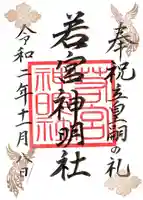 奉祝立皇嗣の礼
若宮神明社
令和二年十一月八日